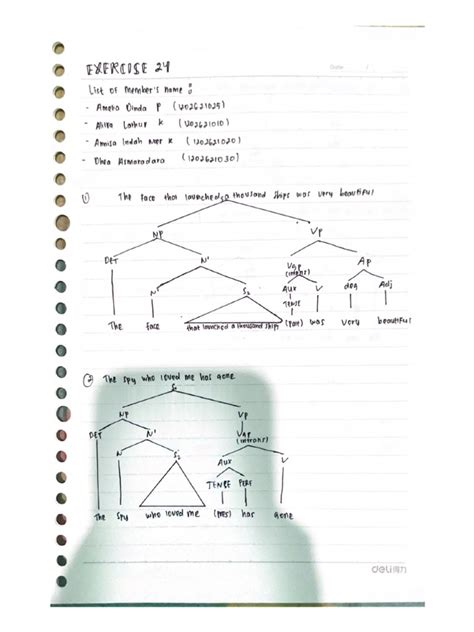 EXERCISE 24
Date /
List of Member's name :
- Amelia Dinda P (1202621025)
- Alira Larkur K (1202621010)
- Annisa Indah Mer K (1202621020)
- Dhea Asmaradara (1202621030)
① The face that launched a thousand ships was very beautiful
S₁
NP VP
DET N' VGP AP
(intens)
N' S₂ AUX V deg Adj
TENSE
The face that launched a thousand ships (past) was very beautiful
② The spy who loved me has gone
S₁
NP VP
DET N' VGP
(intrans)
N S₂ AUX V
TENSE PERF
The spy who loved me (PRES) has gone
deli得力